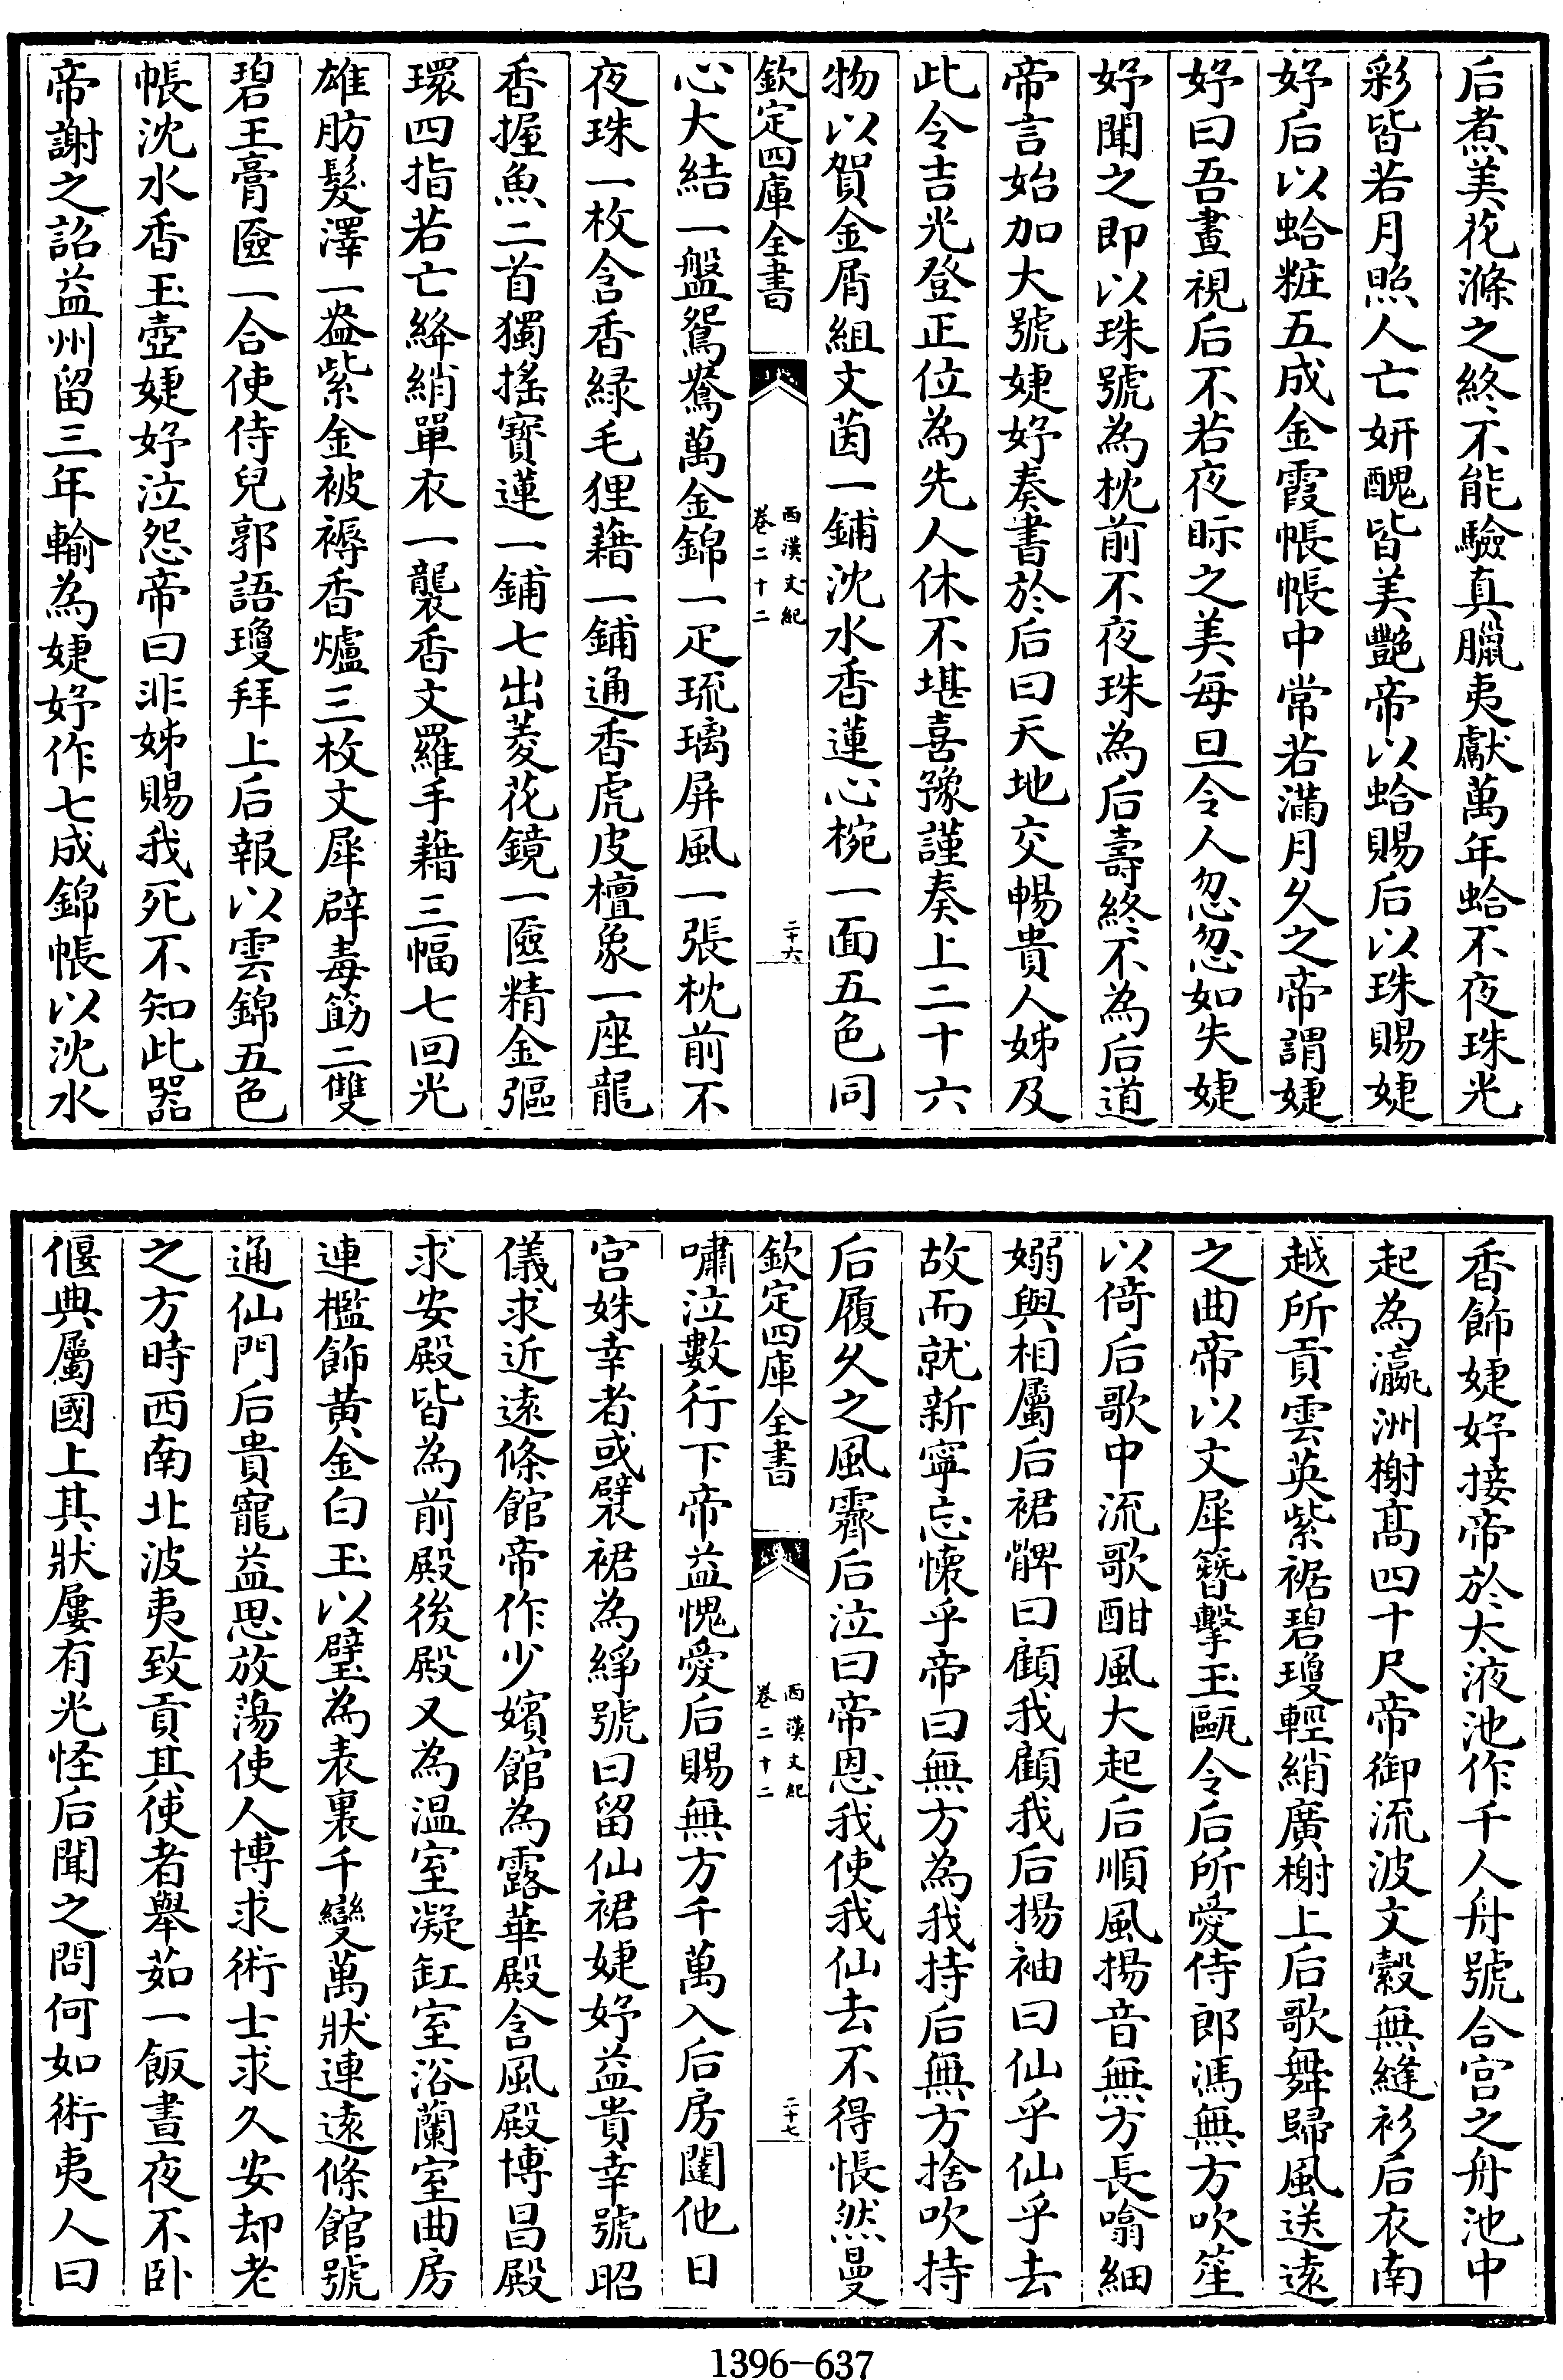 后煮美花滌之終不能驗真臘夷獻萬年蛤不夜珠光
彩皆若月照人亡妍醜皆美艷帝以蛤賜后以珠賜婕
妤后以蛤粧五成金霞帳帳中常若滿月久之帝謂婕
妤曰吾晝視后不若夜眎之美每旦令人忽忽如失婕
妤聞之即以珠號為枕前不夜珠為后壽終不為后道
帝言始加大號婕妤奏書於后曰天地交暢貴人姊及
此令吉光登正位為先人休不堪喜豫謹奏上二十六
物以賀金屑組文茵一鋪沈水香蓮心椀一面五色同
欽定四庫全書
西漢文紀
卷二十二
二十六
心大結一盤鴛鴦萬金錦一疋琉璃屏風一張枕前不
夜珠一枚含香綠毛狸藉一鋪通香虎皮檀象一座龍
香握魚二首獨搖寶蓮一鋪七出菱花鏡一匳精金彄
環四指若亡絳綃單衣一襲香文羅手藉三幅七回光
雄肪髮澤一盎紫金被褥香爐三枚文犀辟毒筯二雙
碧玉膏匳一合使侍兒郭語瓊拜上后報以雲錦五色
帳沈水香玉壺婕妤泣怨帝曰非姊賜我死不知此器
帝謝之詔益州留三年輸為婕妤作七成錦帳以沈水
香飾婕妤接帝於太液池作千人舟號合宮之舟池中
起為瀛洲榭髙四十尺帝御流波文縠無縫衫后衣南
越所貢雲英紫裾碧瓊輕綃廣榭上后歌舞歸風送遠
之曲帝以文犀簪擊玉甌令后所愛侍郎馮無方吹笙
以倚后歌中流歌酣風大起后順風揚音無方長噏細
嫋與相屬后裙髀曰顧我顧我后揚袖曰仙乎仙乎去
故而就新寧忘懷乎帝曰無方為我持后無方捨吹持
后履久之風霽后泣曰帝恩我使我仙去不得悵然曼
欽定四庫全書
西漢文紀
卷二十二
二十七
嘯泣數行下帝益愧愛后賜無方千萬入后房闥他日
宮姝幸者或襞裙為縐號曰留仙裙婕妤益貴幸號昭
儀求近遠條館帝作少嬪館為露華殿含風殿博昌殿
求安殿皆為前殿後殿又為温室凝缸室浴蘭室曲房
連檻飾黃金白玉以璧為表裏千變萬狀連遠條館號
通仙門后貴寵益思放蕩使人博求術士求久安却老
之方時西南北波夷致貢其使者舉茹一飯晝夜不卧
偃典屬國上其狀屢有光怪后聞之問何如術夷人曰
1396-637